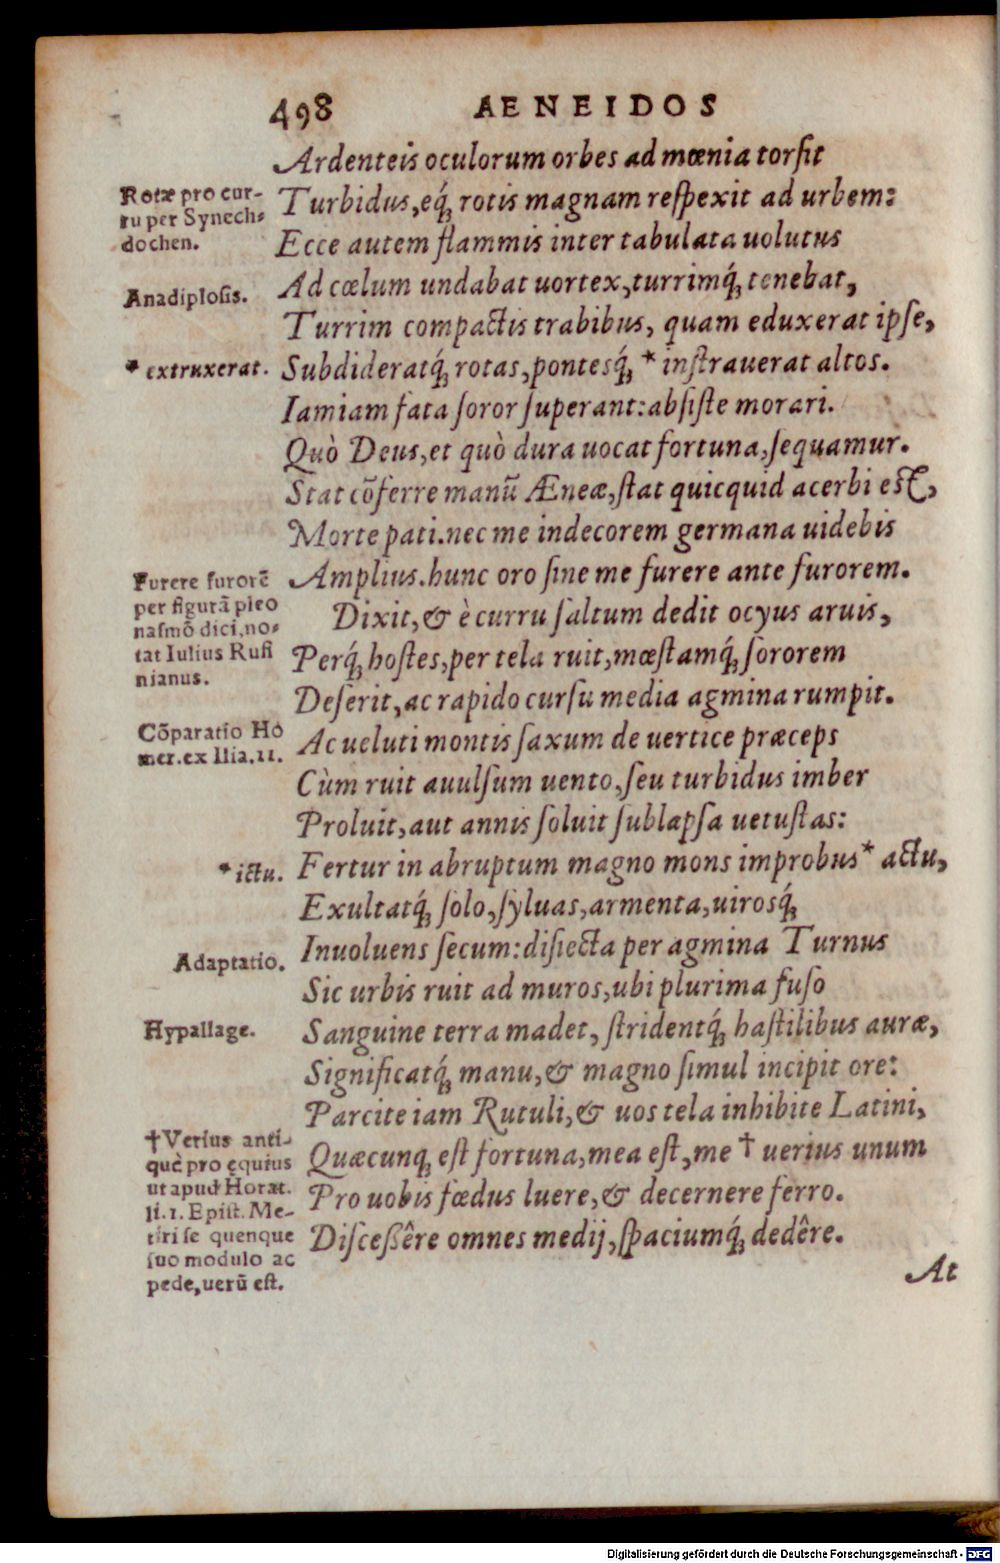 498 AENEIDOS
Ardenteis oculorum orbes ad mœnia torſit
Rotæ pro cur-
ru per Synech-
dochen.
Turbidus, eq́ꝫ rotis magnam reſpexit ad urbem:
Ecce autem flammis inter tabulata uolutus
Anadiploſis.
Ad cœlum undabat uortex, turrimq́ꝫ tenebat,
Turrim compactis trabibus, quam eduxerat ipſe,
* extruxerat.
Subdideratq́ꝫ rotas, pontesq́ꝫ * inſtrauerat altos.
Iamiam fata ſoror ſuperant: abſiſte morari.
Quò Deus, et quò dura uocat fortuna, ſequamur.
Stat cõferre manũ Æneæ, ſtat quicquid acerbi eſt,
Morte pati. nec me indecorem germana uidebis
Furere furorẽ
per figurã pleo
naſmõ dici, no-
tat Iulius Rufi
nianus.
Amplius. hunc oro ſine me furere ante furorem.
Dixit, & è curru ſaltum dedit ocyus aruis,
Perq́ꝫ hoſtes, per tela ruit, mœſtamq́ꝫ ſororem
Deſerit, ac rapido curſu media agmina rumpit.
Cõparatio Ho
mer. ex Ilia. 11.
Ac ueluti montis ſaxum de uertice præceps
Cùm ruit auulſum uento, ſeu turbidus imber
Proluit, aut annis ſoluit ſublapſa uetuſtas:
* ictu.
Fertur in abruptum magno mons improbus * actu,
Exultatq́ꝫ ſolo, ſyluas, armenta, uirosq́ꝫ
Adaptatio.
Inuoluens ſecum: diſiecta per agmina Turnus
Sic urbis ruit ad muros, ubi plurima fuſo
Hypallage.
Sanguine terra madet, ſtridentq́ꝫ haſtilibus auræ,
Significatq́ꝫ manu, & magno ſimul incipit ore:
Parcite iam Rutuli, & uos tela inhibite Latini,
†Verius anti-
què pro ęquius
ut apud Horat.
li. 1. Epiſt. Me-
tiri ſe quenque
ſuo modulo ac
pede, uerũ eſt.
Quæcunqꝫ eſt fortuna, mea eſt, me † uerius unum
Pro uobis fœdus luere, & decernere ferro.
Diſceßêre omnes medij, ſpaciumq́ꝫ dedêre.
At
Digitalisierung gefördert durch die Deutsche Forschungsgemeinschaft - DFG